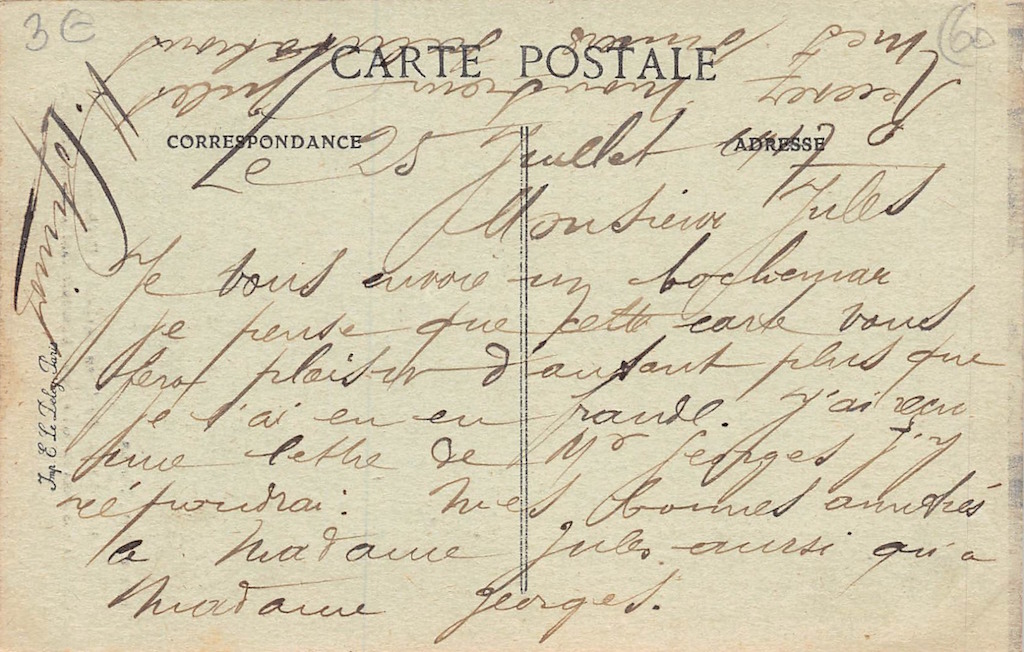 3€
60
CARTE POSTALE
CORRESPONDANCE
ADRESSE
Le 25 Juillet 1917
Monsieur Jules
Je vous envoie un bochemar
je pense que cette carte vous
fera plaisir d'autant plus que
je l'ai eu en fraude. J'ai reçu
une lettre de Mr Georges j'y
répondrai. Mes bonnes amitiés
a Madame Jules aussi qu'a
Madame Georges.
Recevez Monsieur Jules
mes salutations
Imp. E. Le Deley, Paris